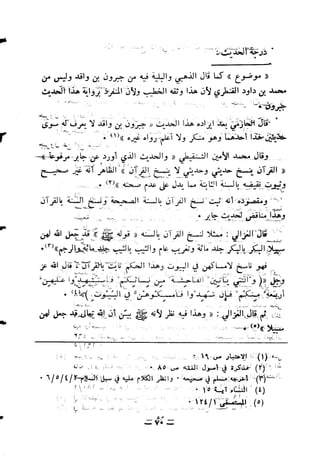 درجة الحديث :
« موضوع » كما قال الذهبي والبلية فيه من جبرون بن واقد وليس من
محمد بن داود القنطري لأن هذا وثقه الخطيب ولأن المنفرد برواية هذا الحديث
جبرون
قال الحازمي بعد ايراده هذا الحديث « جبرون بن واقد لا يعرف له سوى
حديثين هذا أحدهما وهو منكر ولا أعلم رواه غيره » (١) ٠
وقال محمد الأمين الشنقيطي « والحديث الذي أورد عن جابر مرفوعا
« القرآن ينسخ حديثي وحديثي لا ينسخ القرآن » الظاهر أنه غير صحيح
وثبوت نقيضه بالسنة الثابتة مما يدل على عدم صحته » (٢) ٠
ومقصوده أنه ثبت نسخ القرآن بالسنة الصحيحة ونسخ السنة بالقرآن
وهذا مناقض لحديث جابر ٠
قال الغزالي : مثلا لنسخ القرآن بالسنة « قوله ﷺ قد جعل الله لهن
سبيلا البكر بالبكر جلد مائة وتغريب عام والثيب بالثيب جلد مائة والرجم » (٣)
فهو ناسخ لامساكهن في البيوت وهذا الحكم ثابت بالقرآن قال الله عز
وجل ( واللاتي يأتين الفاحشة من نسائكم فاستشهدوا عليهن
أربعة منكم فان شهدوا فامسكوهن في البيوت ) (٤) ٠
ثم قال الغزالي : « وهذا فيه نظر لأنه ﷺ بين أن الله تعالى قد جعل لهن
سبيلا » (٥) ٠
(١) الاعتبار ص
(٢) مذكرة في أصول الفقه ص ٨٥ ٠
(٣) أخرجه مسلم في صحيحه ٠ وانظر الكلام عليه في سبل السلام
(٤) النساء آية ١٥ ٠
(٥) المستصفى ١/١٢٤ ٠